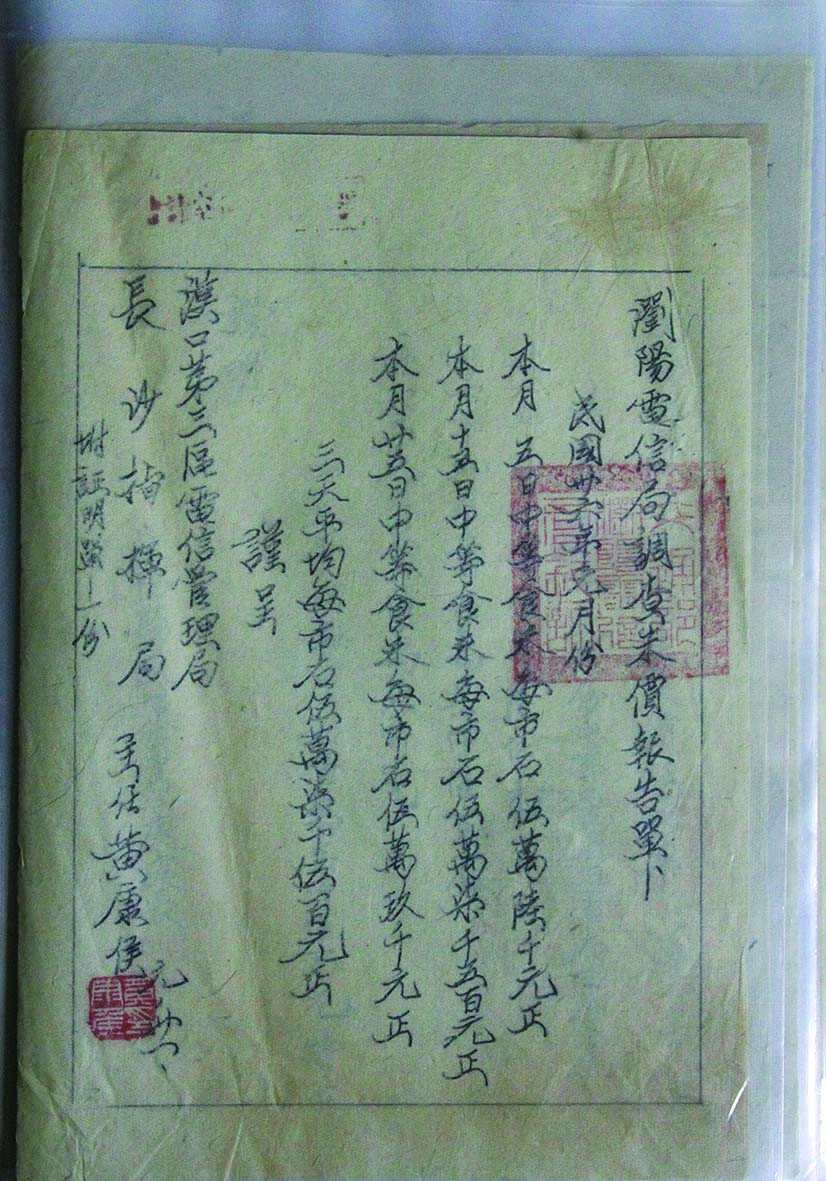 瀏陽電信局調查米價報告單
民國卅六年元月份
本月五日中等食米每市石伍萬陸千元正
本月十五日中等食米每市石伍萬柒千五百元正
本月廿五日中等食米每市石伍萬玖千元正
三天平均每市石伍萬柒千伍百元正
謹呈
漢口第三區電信管理局
長沙指揮局
附証明單一份
主任黃康侯